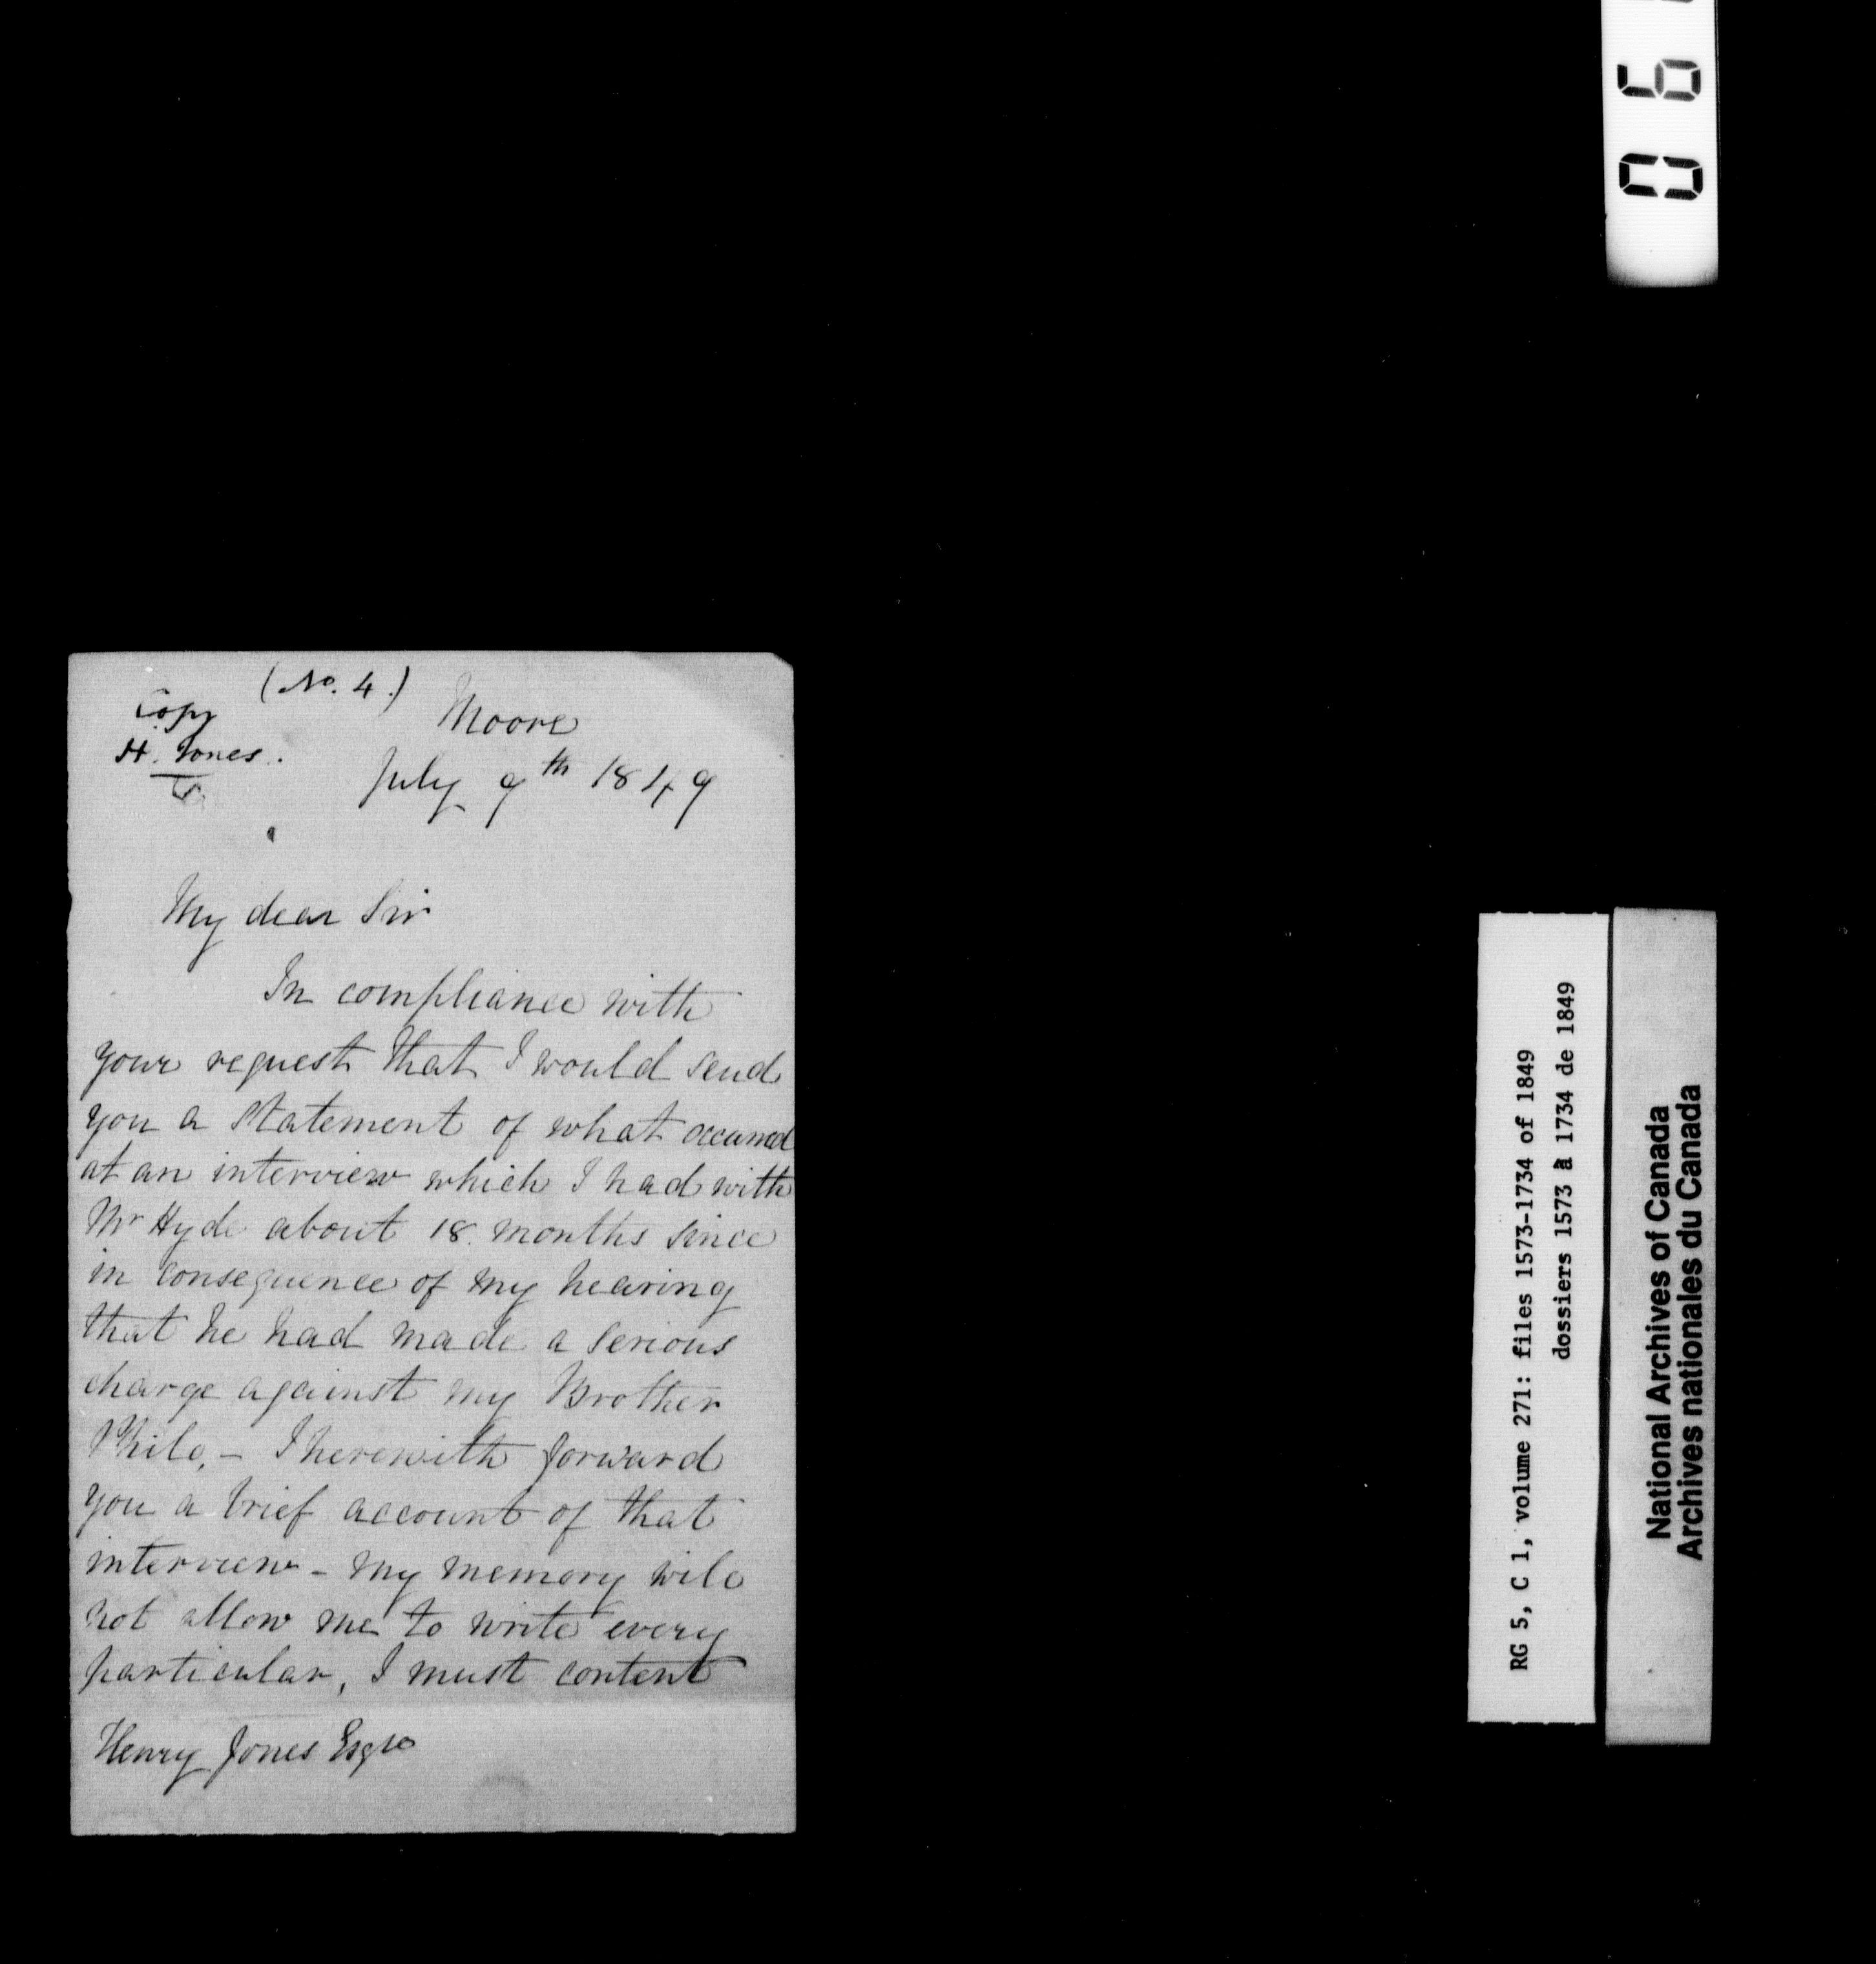 (No. 4.)
Copy
H. Jones.
Moore
July 9th 1849
My dear Sir
In compliance with
your request that I would send
you a statement of what occurred
at an interview which I had with
Mr Hyde about 18 months since
in consequence of my hearing
that he had made a serious
charge against my Brother
Philo, – I herewith forward
you a brief account of that
interview – my memory will
not allow me to write every
particular, I must content
Henry Jones Esqre
06
RG 5, C 1, volume 271: files 1573-1734 of 1849
dossiers 1573 à 1734 de 1849
National Archives of Canada
Archives nationales du Canada